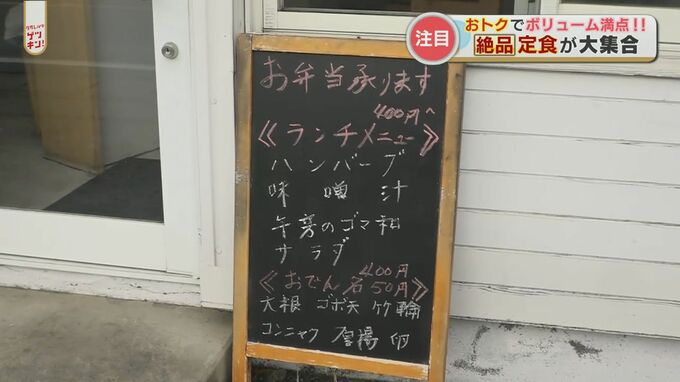 クサレルケ
ゲツキン!
注目
おトクでボリューム満点!!
絶品定食が大集合
お弁当承ります
400円~
《ランチメニュー》
ハンバーグ
味噌汁
午房のゴマ和
サラダ
400円
《おでん各50円》
大根 ゴボ天 竹輪
コンニャク 厚揚 卵